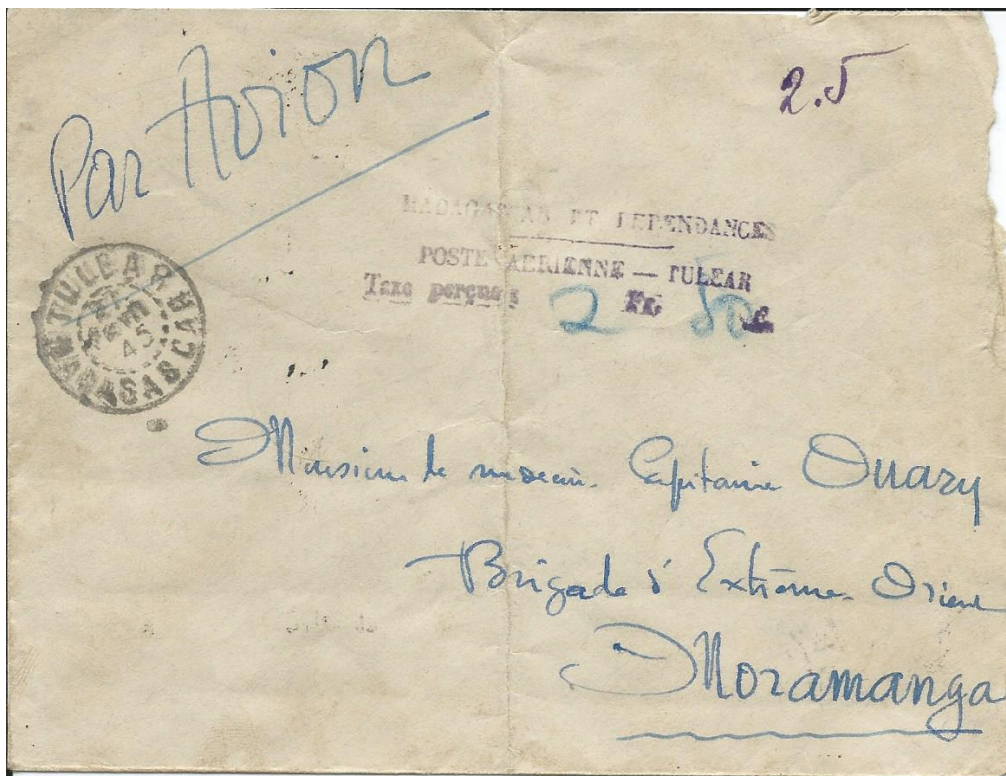 Par Avion
2.5
MADAGASCAR ET DEPENDANCES
POSTE AERIENNE — TULEAR
Taxe perçue : 2 Fr. 50 c.
TULEAR
45
MADAGASCAR
Monsieur le médecin Capitaine Ouary
Brigade d'Extrême Orient
Moramanga